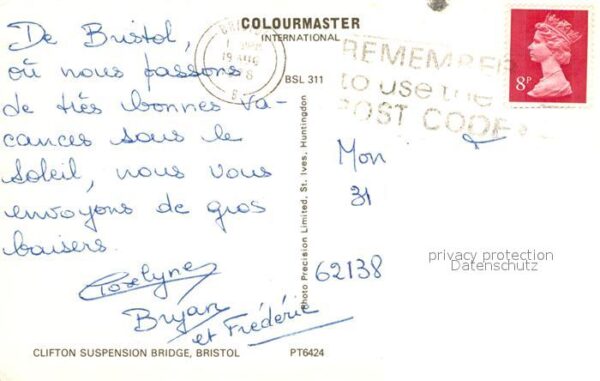 De Bristol,
où nous passons
de très bonnes va-
cances sous le
soleil, nous vous
envoyons de gros
baisers.
Joselyne
Bryan
et Frédéric
CLIFTON SUSPENSION BRIDGE, BRISTOL PT6424
COLOURMASTER
INTERNATIONAL
BSL 311
Photo Precision Limited, St. Ives, Huntingdon
19 AUG
8
REMEMBER
to use the
POST CODE
8P
Mon
31
62138
privacy protection
Datenschutz